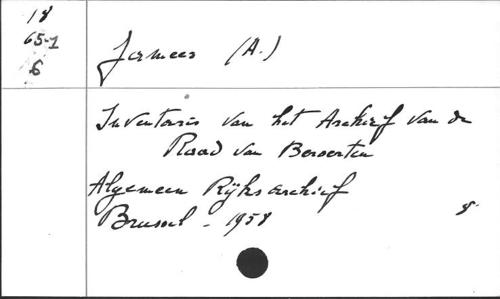 18
65-1
6
Jermees (A.)
Inventaris van het Archief van de
Raad van Beroerten
Algemeen Rijksarchief
Brussel - 1958
8°